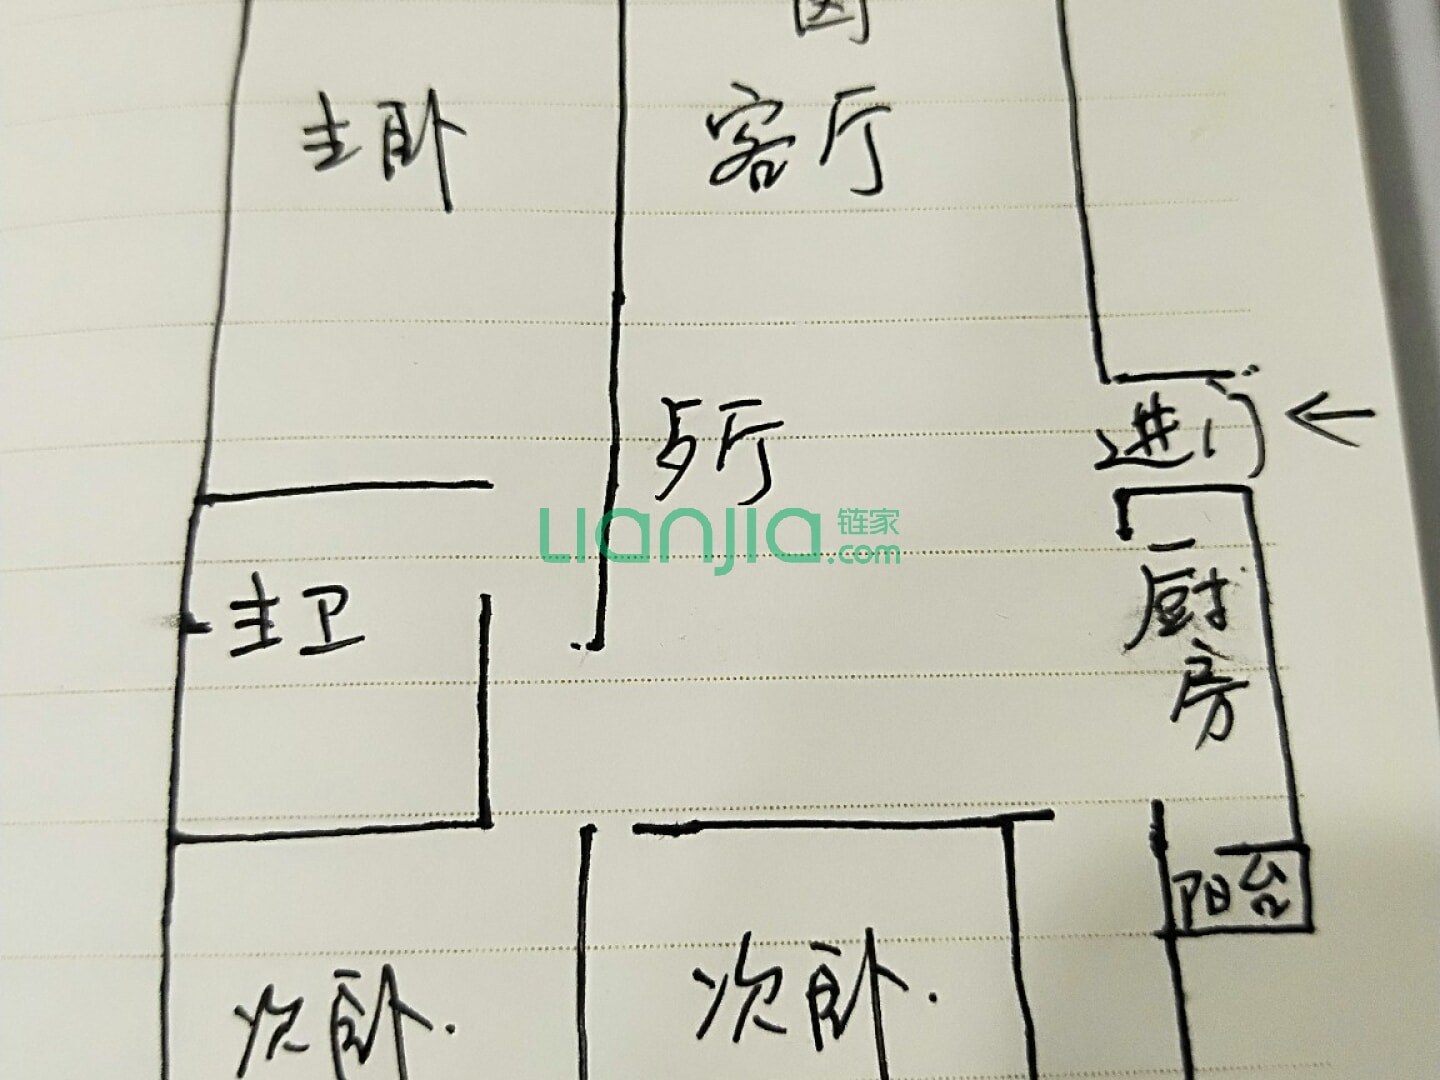 主卧
客厅
歺厅
进门
Lianjia 链家
.com
主卫
厨房
阳台
次卧.
次卧.